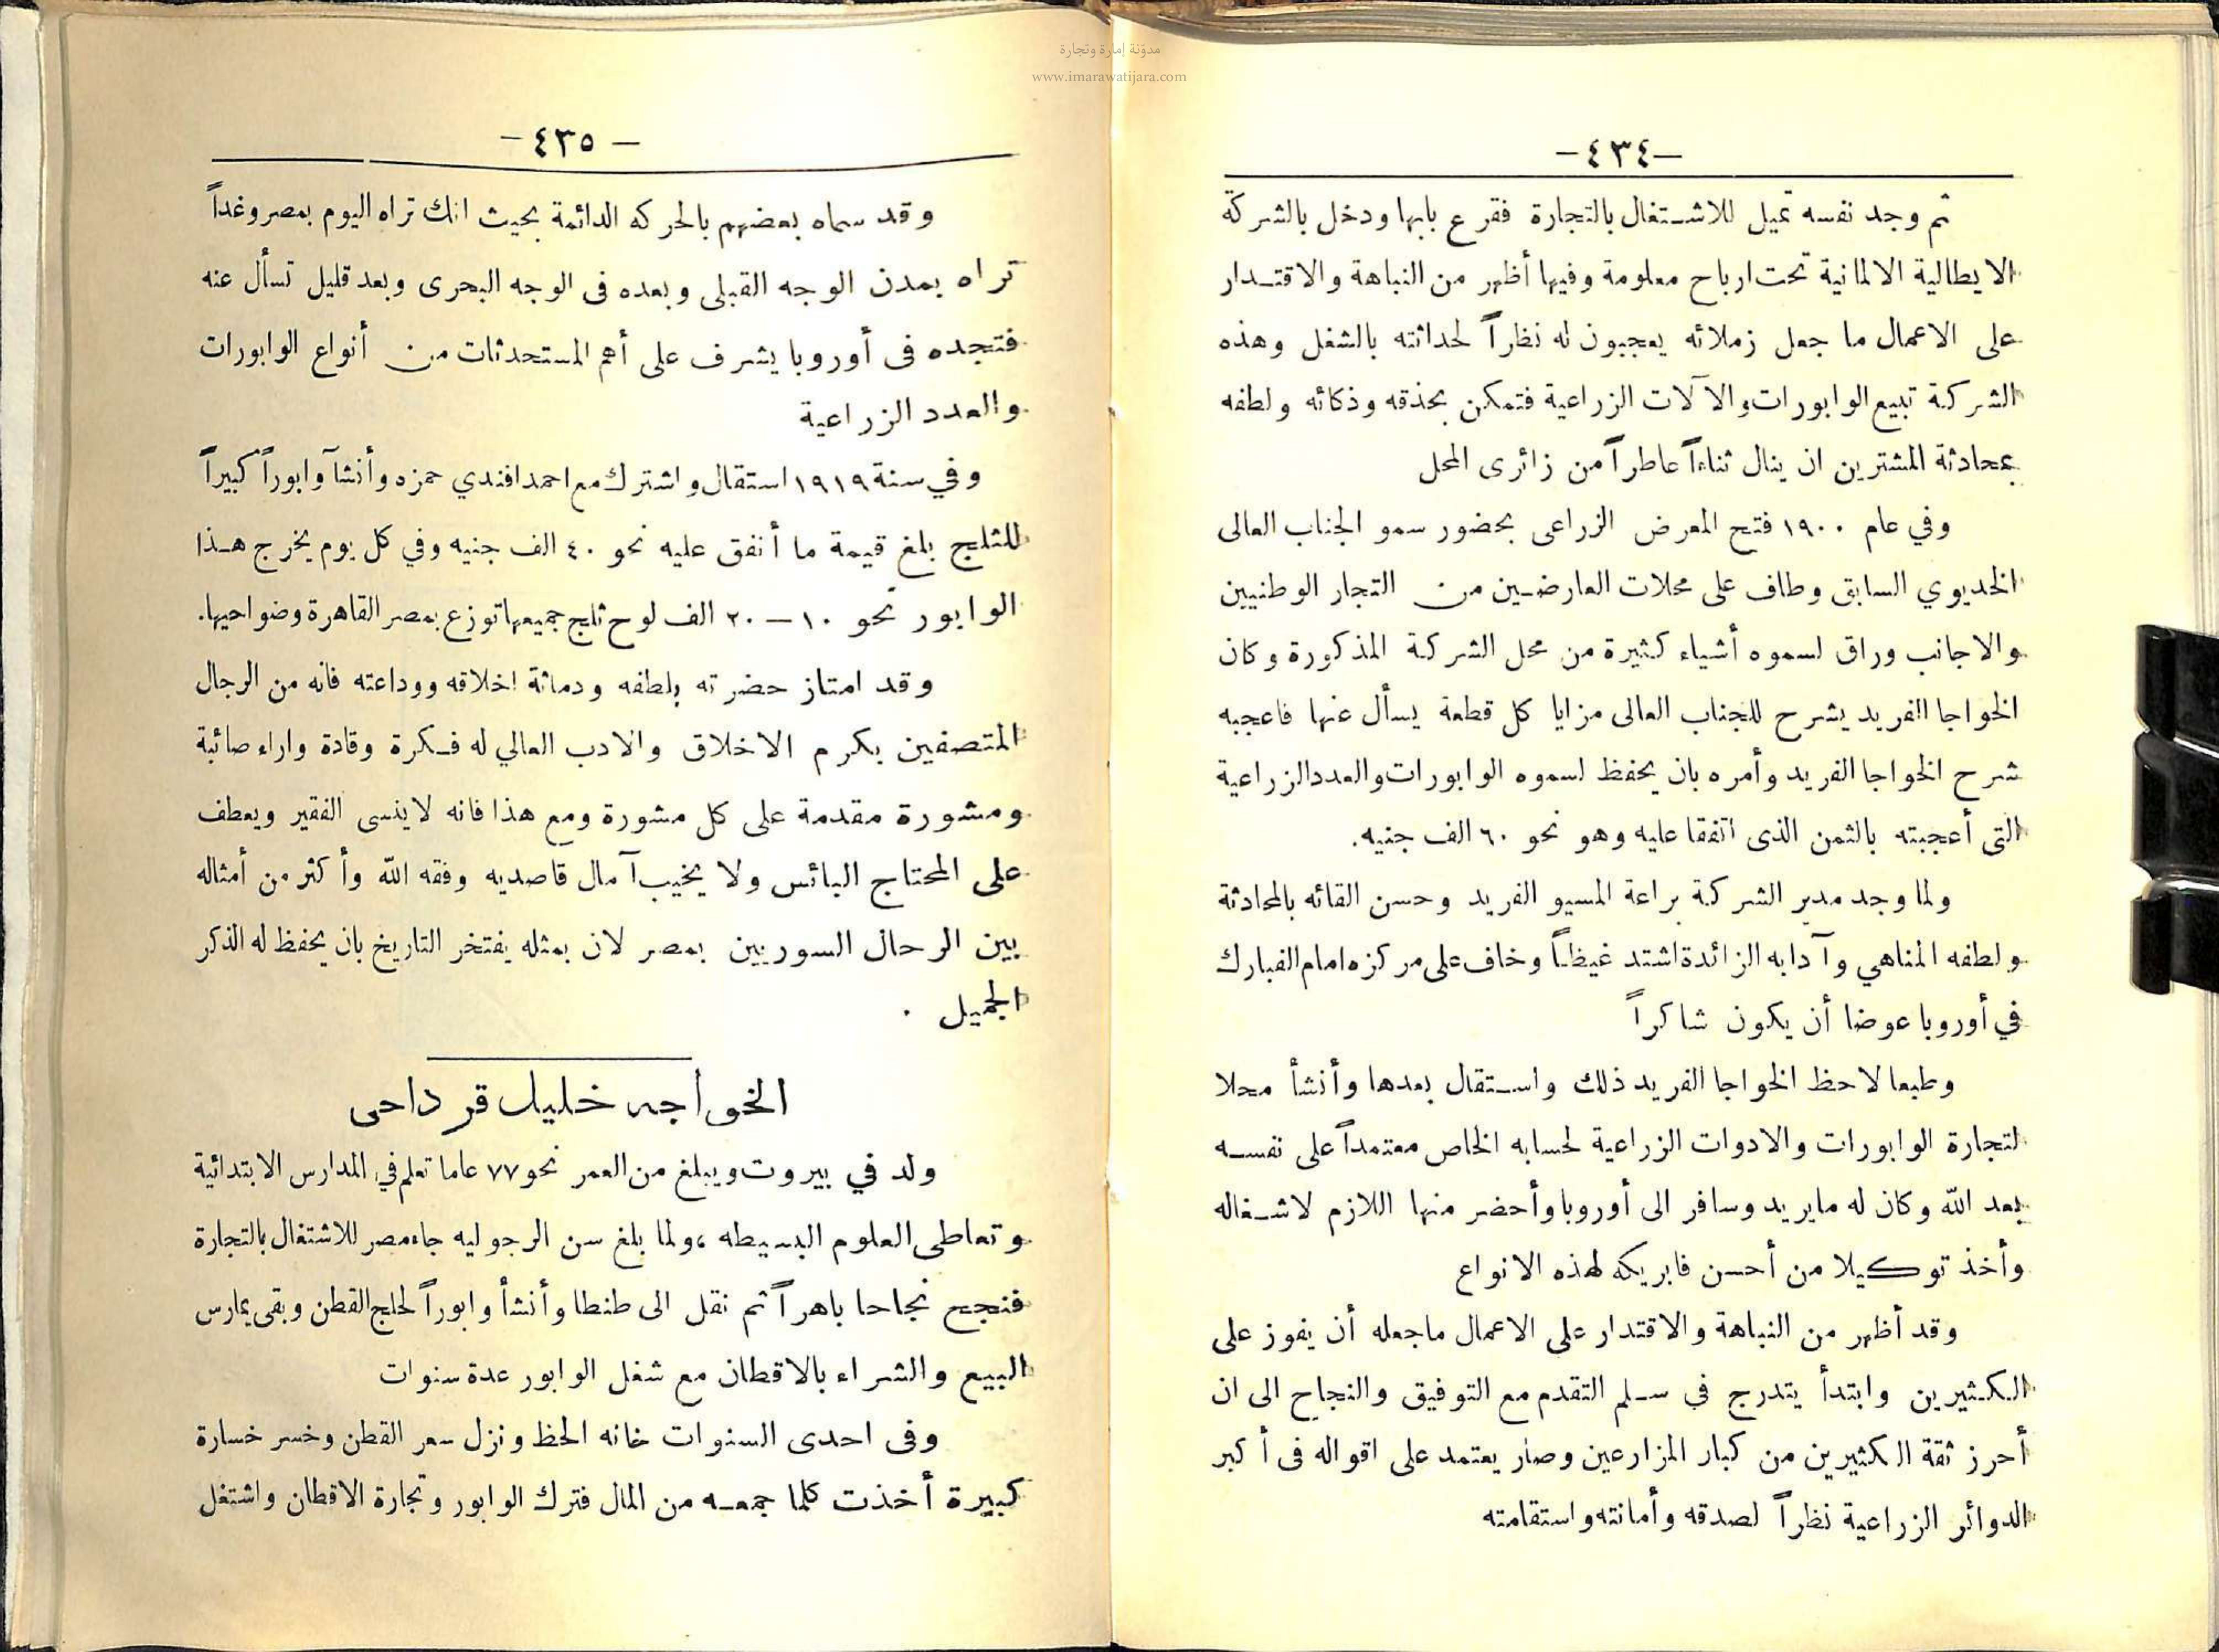 مدوّنة إمارة وتجارة
www.imarawatijara.com
—٤٣٤—
ثم وجد نفسه تميل للاشتغال بالتجارة فقرع بابها ودخل بالشركة
الايطالية الالمانية تحت ارباح معلومة وفيها أظهر من النباهة والاقتدار
على الاعمال ما جعل زملائه يعجبون له نظراً لحداثته بالشغل وهذه
الشركة تبيع الوابورات والآلات الزراعية فتمكن بحذقه وذكائه ولطفه
بمحادثة المشترين ان ينال ثناءاً عاطراً من زائرى المحل
وفي عام ١٩٠٠ فتح المعرض الزراعى بحضور سمو الجناب العالى
الخديوي السابق وطاف على محلات العارضين من التجار الوطنيين
والاجانب وراق لسموه أشياء كثيرة من محل الشركة المذكورة وكان
الخواجا الفريد يشرح للجناب العالى مزايا كل قطعة يسأل عنها فاعجبه
شرح الخواجا الفريد وأمره بان يحفظ لسموه الوابورات والعدد الزراعية
التى أعجبته بالثمن الذى اتفقا عليه وهو نحو ٦٠ الف جنيه.
ولما وجد مدير الشركة براعة المسيو الفريد وحسن القائه بالمحادثة
ولطفه المناهي وآدابه الزائدة اشتد غيظاً وخاف على مركزه امام الفبارك
في أوروبا عوضا أن يكون شاكراً
وطبعا لاحظ الخواجا الفريد ذلك واستقال بعدها وأنشأ محلا
لتجارة الوابورات والادوات الزراعية لحسابه الخاص معتمداً على نفسه
بعد الله وكان له مايريد وسافر الى أوروبا وأحضر منها اللازم لاشغاله
وأخذ توكيلا من أحسن فابريكه لهذه الانواع
وقد أظهر من النباهة والاقتدار على الاعمال ماجعله أن يفوز على
الكثيرين وابتدأ يتدرج في سلم التقدم مع التوفيق والنجاح الى ان
أحرز ثقة الكثيرين من كبار المزارعين وصار يعتمد على اقواله فى أكبر
الدوائر الزراعية نظراً لصدقه وأمانته واستقامته
— ٤٣٥ —
وقد سماه بعضهم بالحركه الدائمة بحيث انك تراه اليوم بمصر وغداً
تراه بمدن الوجه القبلى وبعده فى الوجه البحرى وبعد قليل تسأل عنه
فتجده فى أوروبا يشرف على أهم المستحدثات من أنواع الوابورات
والعدد الزراعية
وفي سنة ١٩١٩ استقال واشترك مع احمد افندي حمزه وأنشآ وابوراً كبيراً
للثلج بلغ قيمة ما أنفق عليه نحو ٤٠ الف جنيه وفي كل يوم يخرج هذا
الوابور نحو ١٠ — ٢٠ الف لوح ثلج جميعها توزع بمصر القاهرة وضواحيها.
وقد امتاز حضرته بلطفه ودماثة اخلاقه ووداعته فانه من الرجال
المتصفين بكرم الاخلاق والادب العالي له فكرة وقادة واراء صائبة
ومشورة مقدمة على كل مشورة ومع هذا فانه لاينسى الفقير ويعطف
على المحتاج البائس ولا يخيب آمال قاصديه وفقه الله وأكثر من أمثاله
بين الرحال السوريين بمصر لان بمثله يفتخر التاريخ بان يحفظ له الذكر
الجميل .
الخواجه خليل قرداحى
ولد في بيروت ويبلغ من العمر نحو ٧٧ عاما تعلم في المدارس الابتدائية
وتعاطى العلوم البسيطه ، ولما بلغ سن الرجوليه جاء مصر للاشتغال بالتجارة
فنجح نجاحا باهراً ثم نقل الى طنطا وأنشأ وابوراً لحلج القطن وبقى يمارس
البيع والشراء بالاقطان مع شغل الوابور عدة سنوات
وفى احدى السنوات خانه الحظ ونزل سعر القطن وخسر خسارة
كبيرة أخذت كلما جمعه من المال فترك الوابور وتجارة الاقطان واشتغل